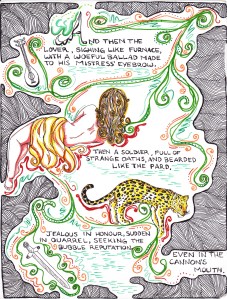 AND THEN THE
LOVER, SIGHING LIKE FURNACE,
WITH A WOEFUL BALLAD MADE
TO HIS MISTRESS' EYEBROW.
THEN A SOLDIER, FULL OF
STRANGE OATHS, AND BEARDED
LIKE THE PARD,
JEALOUS IN HONOUR, SUDDEN
IN QUARREL, SEEKING THE
BUBBLE REPUTATION
EVEN IN THE
CANNON'S
MOUTH.